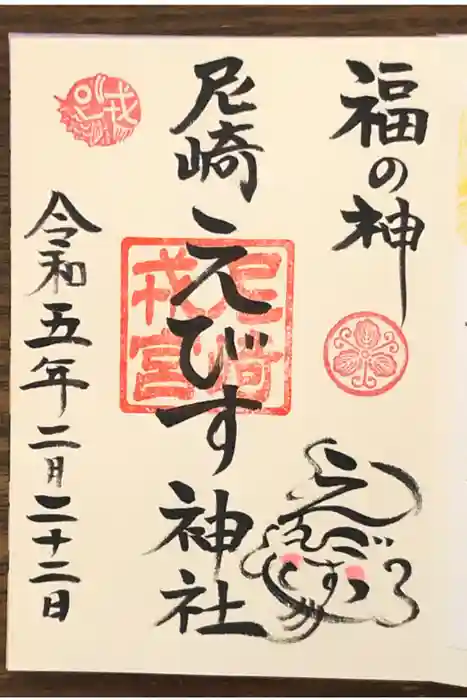 福の神
尼崎えびす神社
令和五年二月二十二日
尼崎
戎宮
戎
えびす